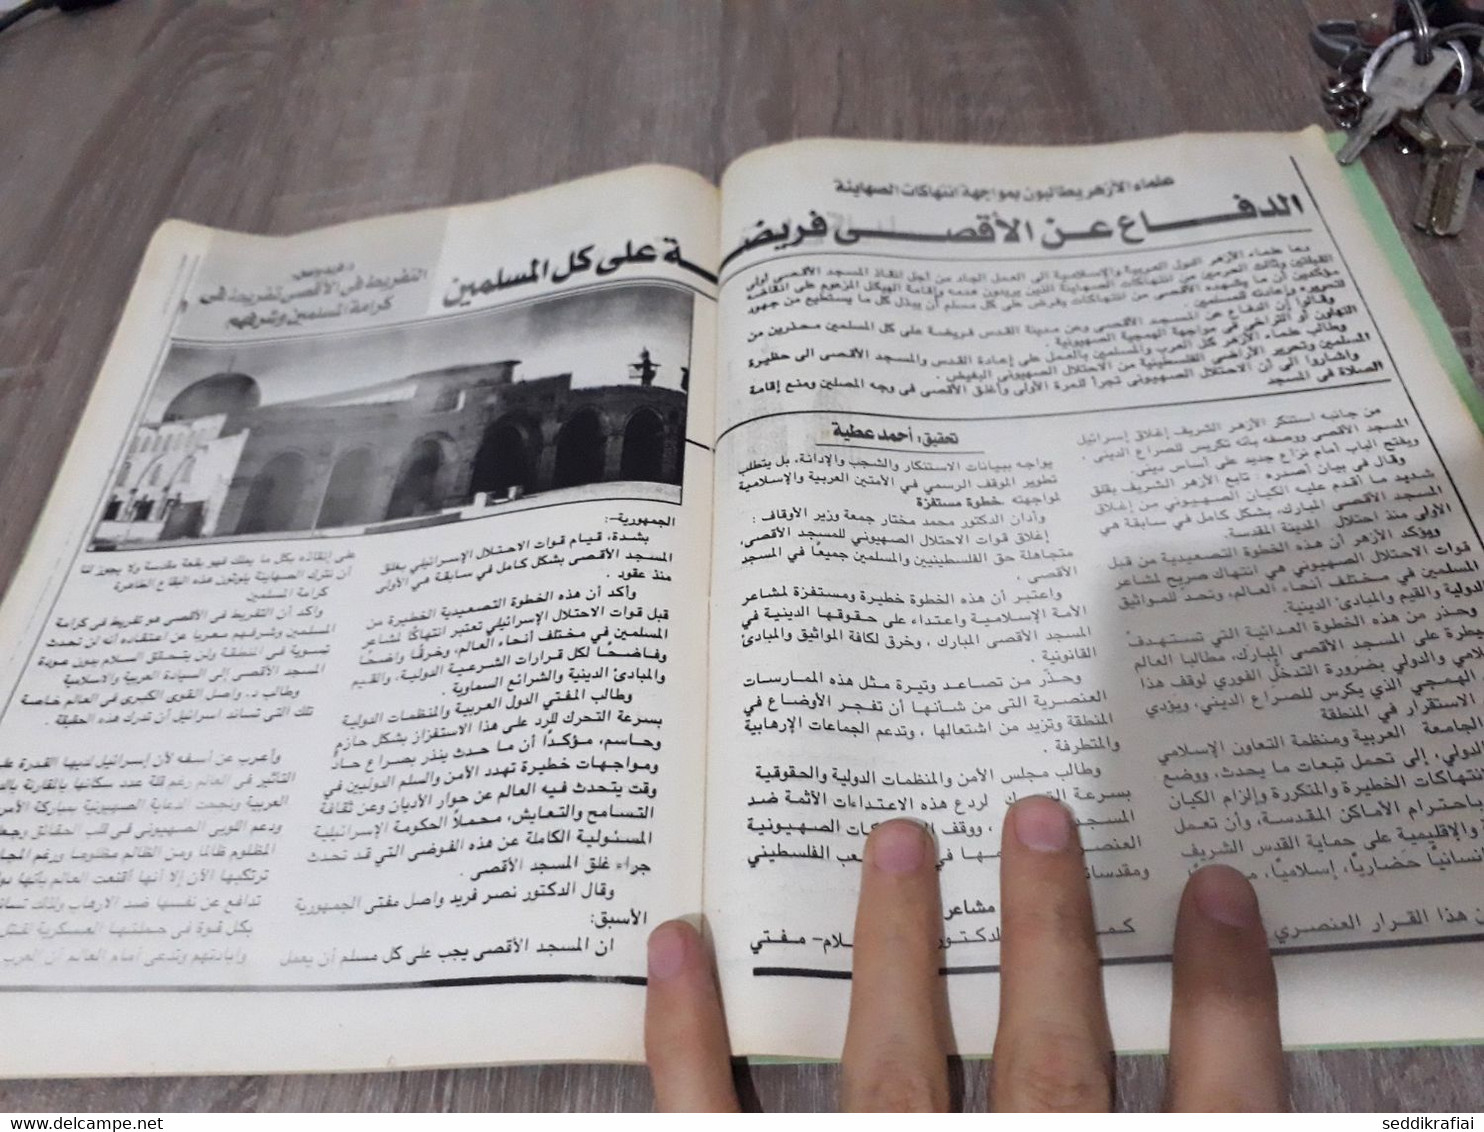 علماء الأزهر يطالبون بمواجهة انتهاكات الصهاينة
الدفاع عن الأقصى فريضة على كل المسلمين
دعا علماء الأزهر الدول العربية والإسلامية الى العمل الجاد من أجل إنقاذ المسجد الأقصى أولى
القبلتين وثالث الحرمين من انتهاكات الصهاينة الذين يريدون هدمه وإقامة الهيكل المزعوم على انقاضه
مؤكدين أن ما يشهده الأقصى من انتهاكات يفرض على كل مسلم أن يبذل كل ما يستطيع من جهود
لتحريره وإعادته للمسلمين.
وقالوا إن الدفاع عن المسجد الأقصى وعن مدينة القدس فريضة على كل المسلمين محذرين من
التهاون أو التراخى فى مواجهة الهمجية الصهيونية.
وطالب علماء الأزهر كل العرب والمسلمين بالعمل على إعادة القدس والمسجد الأقصى الى حظيرة
المسلمين وتحرير الأراضى الفلسطينية من الاحتلال الصهيونى البغيض.
واشاروا الى أن الاحتلال الصهيونى تجرأ للمرة الأولى وأغلق الأقصى فى وجه المصلين ومنع إقامة
الصلاة فى المسجد
تحقيق: أحمد عطية
من جانبه استنكر الأزهر الشريف إغلاق إسرائيل
المسجد الأقصى ووصفه بأنه تكريس للصراع الدينى،
ويفتح الباب أمام نزاع جديد على أساس دينى.
وقال فى بيان أصدره: تابع الأزهر الشريف بقلق
شديد ما أقدم عليه الكيان الصهيوني من إغلاق
المسجد الأقصى المبارك، بشكل كامل في سابقة هي
الأولى منذ احتلال المدينة المقدسة.
ويؤكد الأزهر أن هذه الخطوة التصعيدية من قبل
قوات الاحتلال الصهيوني هي انتهاك صريح لمشاعر
المسلمين في مختلف أنحاء العالم، وتحد للمواثيق
الدولية والقيم والمبادئ الدينية.
وحذر من هذه الخطوة العدائية التي تستهدف
يطرة على المسجد الأقصى المبارك، مطالبا العالم
لامي والدولي بضرورة التدخل الفوري لوقف هذا
الهمجي الذي يكرس للصراع الديني، ويؤدي
الاستقرار في المنطقة
الجامعة العربية ومنظمة التعاون الإسلامي
الدولي، إلى تحمل تبعات ما يحدث، ووضع
نتهاكات الخطيرة والمتكررة وإلزام الكيان
باحترام الأماكن المقدسة، وأن تعمل
والإقليمية على حماية القدس الشريف
إنسانياً حضارياً، إسلامياً،
هذا القرار العنصري
يواجه ببيانات الاستنكار والشجب والإدانة، بل يتطلب
تطوير الموقف الرسمي في الأمتين العربية والإسلامية
لمواجهته خطوة مستفزة
وأدان الدكتور محمد مختار جمعة وزير الأوقاف:
إغلاق قوات الاحتلال الصهيوني للمسجد الأقصى،
متجاهلة حق الفلسطينيين والمسلمين جميعًا في المسجد
الأقصى.
واعتبر أن هذه الخطوة خطيرة ومستفزة لمشاعر
الأمة الإسلامية واعتداء على حقوقها الدينية في
المسجد الأقصى المبارك، وخرق لكافة المواثيق والمبادئ
القانونية.
وحذّر من تصاعد وتيرة مثل هذه الممارسات
العنصرية التى من شأنها أن تفجر الأوضاع في
المنطقة وتزيد من اشتعالها، وتدعم الجماعات الإرهابية
والمتطرفة.
وطالب مجلس الأمن والمنظمات الدولية والحقوقية
بسرعة لردع هذه الاعتداءات الآثمة ضد
المسجد ، ووقف الصهيونية
العنصر الفلسطيني
ومقدسا
مشاعر
كما الدكتور مفتي
الجمهورية-:
بشدة، قيام قوات الاحتلال الإسرائيلي بغلق
المسجد الأقصى بشكل كامل في سابقة هي الأولى
منذ عقود.
وأكد أن هذه الخطوة التصعيدية الخطيرة من
قبل قوات الاحتلال الإسرائيلي تعتبر انتهاكًا لمشاعر
المسلمين في مختلف أنحاء العالم، وخرقًا واضحًا
وفاضحًا لكل قرارات الشرعية الدولية، والقيم
والمبادئ الدينية والشرائع السماوية.
وطالب المفتي الدول العربية والمنظمات الدولية
بسرعة التحرك للرد على هذا الاستفزاز بشكل حازم
وحاسم، مؤكدًا أن ما حدث ينذر بصراع حاد
ومواجهات خطيرة تهدد الأمن والسلم الدوليين في
وقت يتحدث فيه العالم عن حوار الأديان وعن ثقافة
التسامح والتعايش، محملاً الحكومة الإسرائيلية
المسئولية الكاملة عن هذه الفوضى التي قد تحدث
جراء غلق المسجد الأقصى.
وقال الدكتور نصر فريد واصل مفتى الجمهورية
الأسبق:
ان المسجد الأقصى يجب على كل مسلم أن يعمل
التفريط فى الأقصى تفريط فى
كرامة المسلمين وشرفهم
على إنقاذه بكل ما يملك فهو بقعة مقدسة ولا يجوز لنا
أن نترك الصهاينة يلوثون هذه البقاع الطاهرة
كرامة المسلمين
وأكد أن التفريط فى الأقصى هو تفريط فى كرامة
المسلمين وشرفهم معربا عن اعتقاده أنه لن تحدث
تسوية فى المنطقة ولن يتحقق السلام بدون عودة
المسجد الأقصى إلى السيادة العربية والاسلامية
وطالب د. واصل القوى الكبرى فى العالم خاصة
تلك التى تساند اسرائيل أن تدرك هذه الحقيقة.
وأعرب عن أسفه لأن إسرائيل لديها القدرة على
التأثير فى العالم رغم قلة عدد سكانها بالمقارنة
العربية ونجحت الدعاية الصهيونية بمباركة
ودعم اللوبى الصهيونى فى قلب الحقائق
المظلوم ظالما ومن الظالم مظلوما ورغم
ترتكبها الآن إلا أنها أقنعت العالم بأنها
تدافع عن نفسها ضد الارهاب ولذلك
بكل قوة فى حملتها العسكرية
وابادتهم وتدعى أمام العالم أن العرب
delcampe.net
seddikrafiai